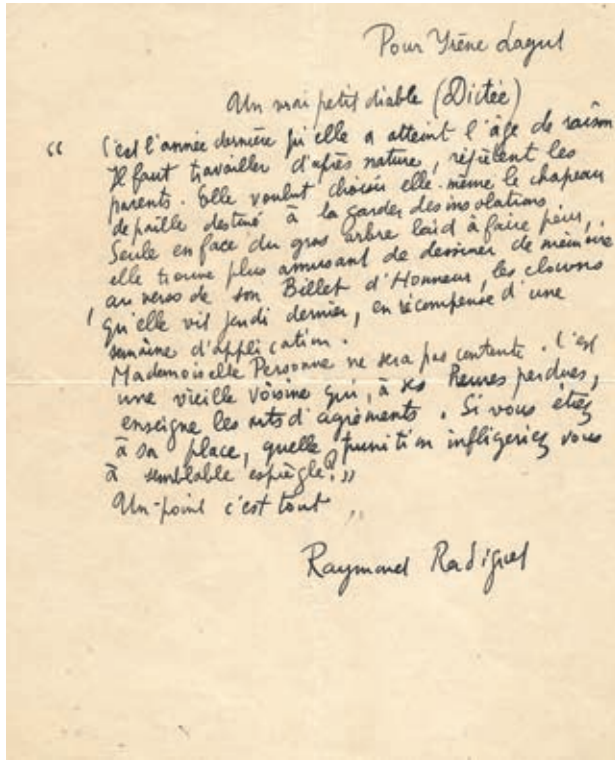 Pour Yrène Lagut
Un vrai petit diable (Dictée)
“ C'est l'année dernière qu'elle a atteint l'âge de raison
Il faut travailler d'après nature, répètent les
parents. Elle voulut choisir elle-même le chapeau
de paille destiné à la garder des insolations.
Seule en face du gros arbre laid à faire peur,
elle trouve plus amusant de dessiner de mémoire
au verso de son Billet d'Honneur, les clowns
qu'elle vit jeudi dernier, en récompense d'une
semaine d'application.
Mademoiselle Personne ne sera pas contente. C'est
une vieille voisine qui, à ses Heures perdues,
enseigne les arts d'agréments. Si vous étiez
à sa place, quelle punition infligeriez vous
à semblable espiègle? ”
Un-point c'est tout ”
Raymond Radiguet